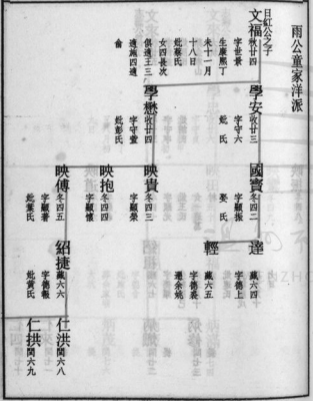 雨公童家洋派
日紅公之子
文福 秋廿四
字世景
生康熙丁
未十一月
十八日
妣蔡氏
女四長次
俱適王三
適施四適
俞
學安 收廿三
字守六
妣 氏
學懋 收廿四
字守萱
妣彭氏
國寶 冬四二
字顯振
娶 氏
映貴 冬四三
字顯榮
映抱 冬四四
字顯懷
映傅 冬四五
字顯著
妣葉氏
達 藏六四
字德上
輕 藏六五
字德裘
遷余姚
紹捷 藏六六
字德報
妣黄氏
仁洪 閏六八
仁拱 閏六九